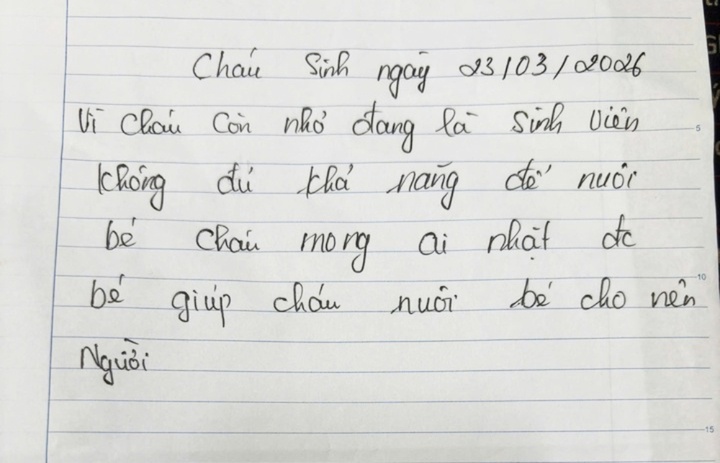 Cháu Sinh ngày 23/03/2026
Vì cháu còn nhỏ đang là sinh viên
không đủ khả năng để nuôi
bé cháu mong ai nhặt đc
bé giúp cháu nuôi bé cho nên
Người
5
10
15